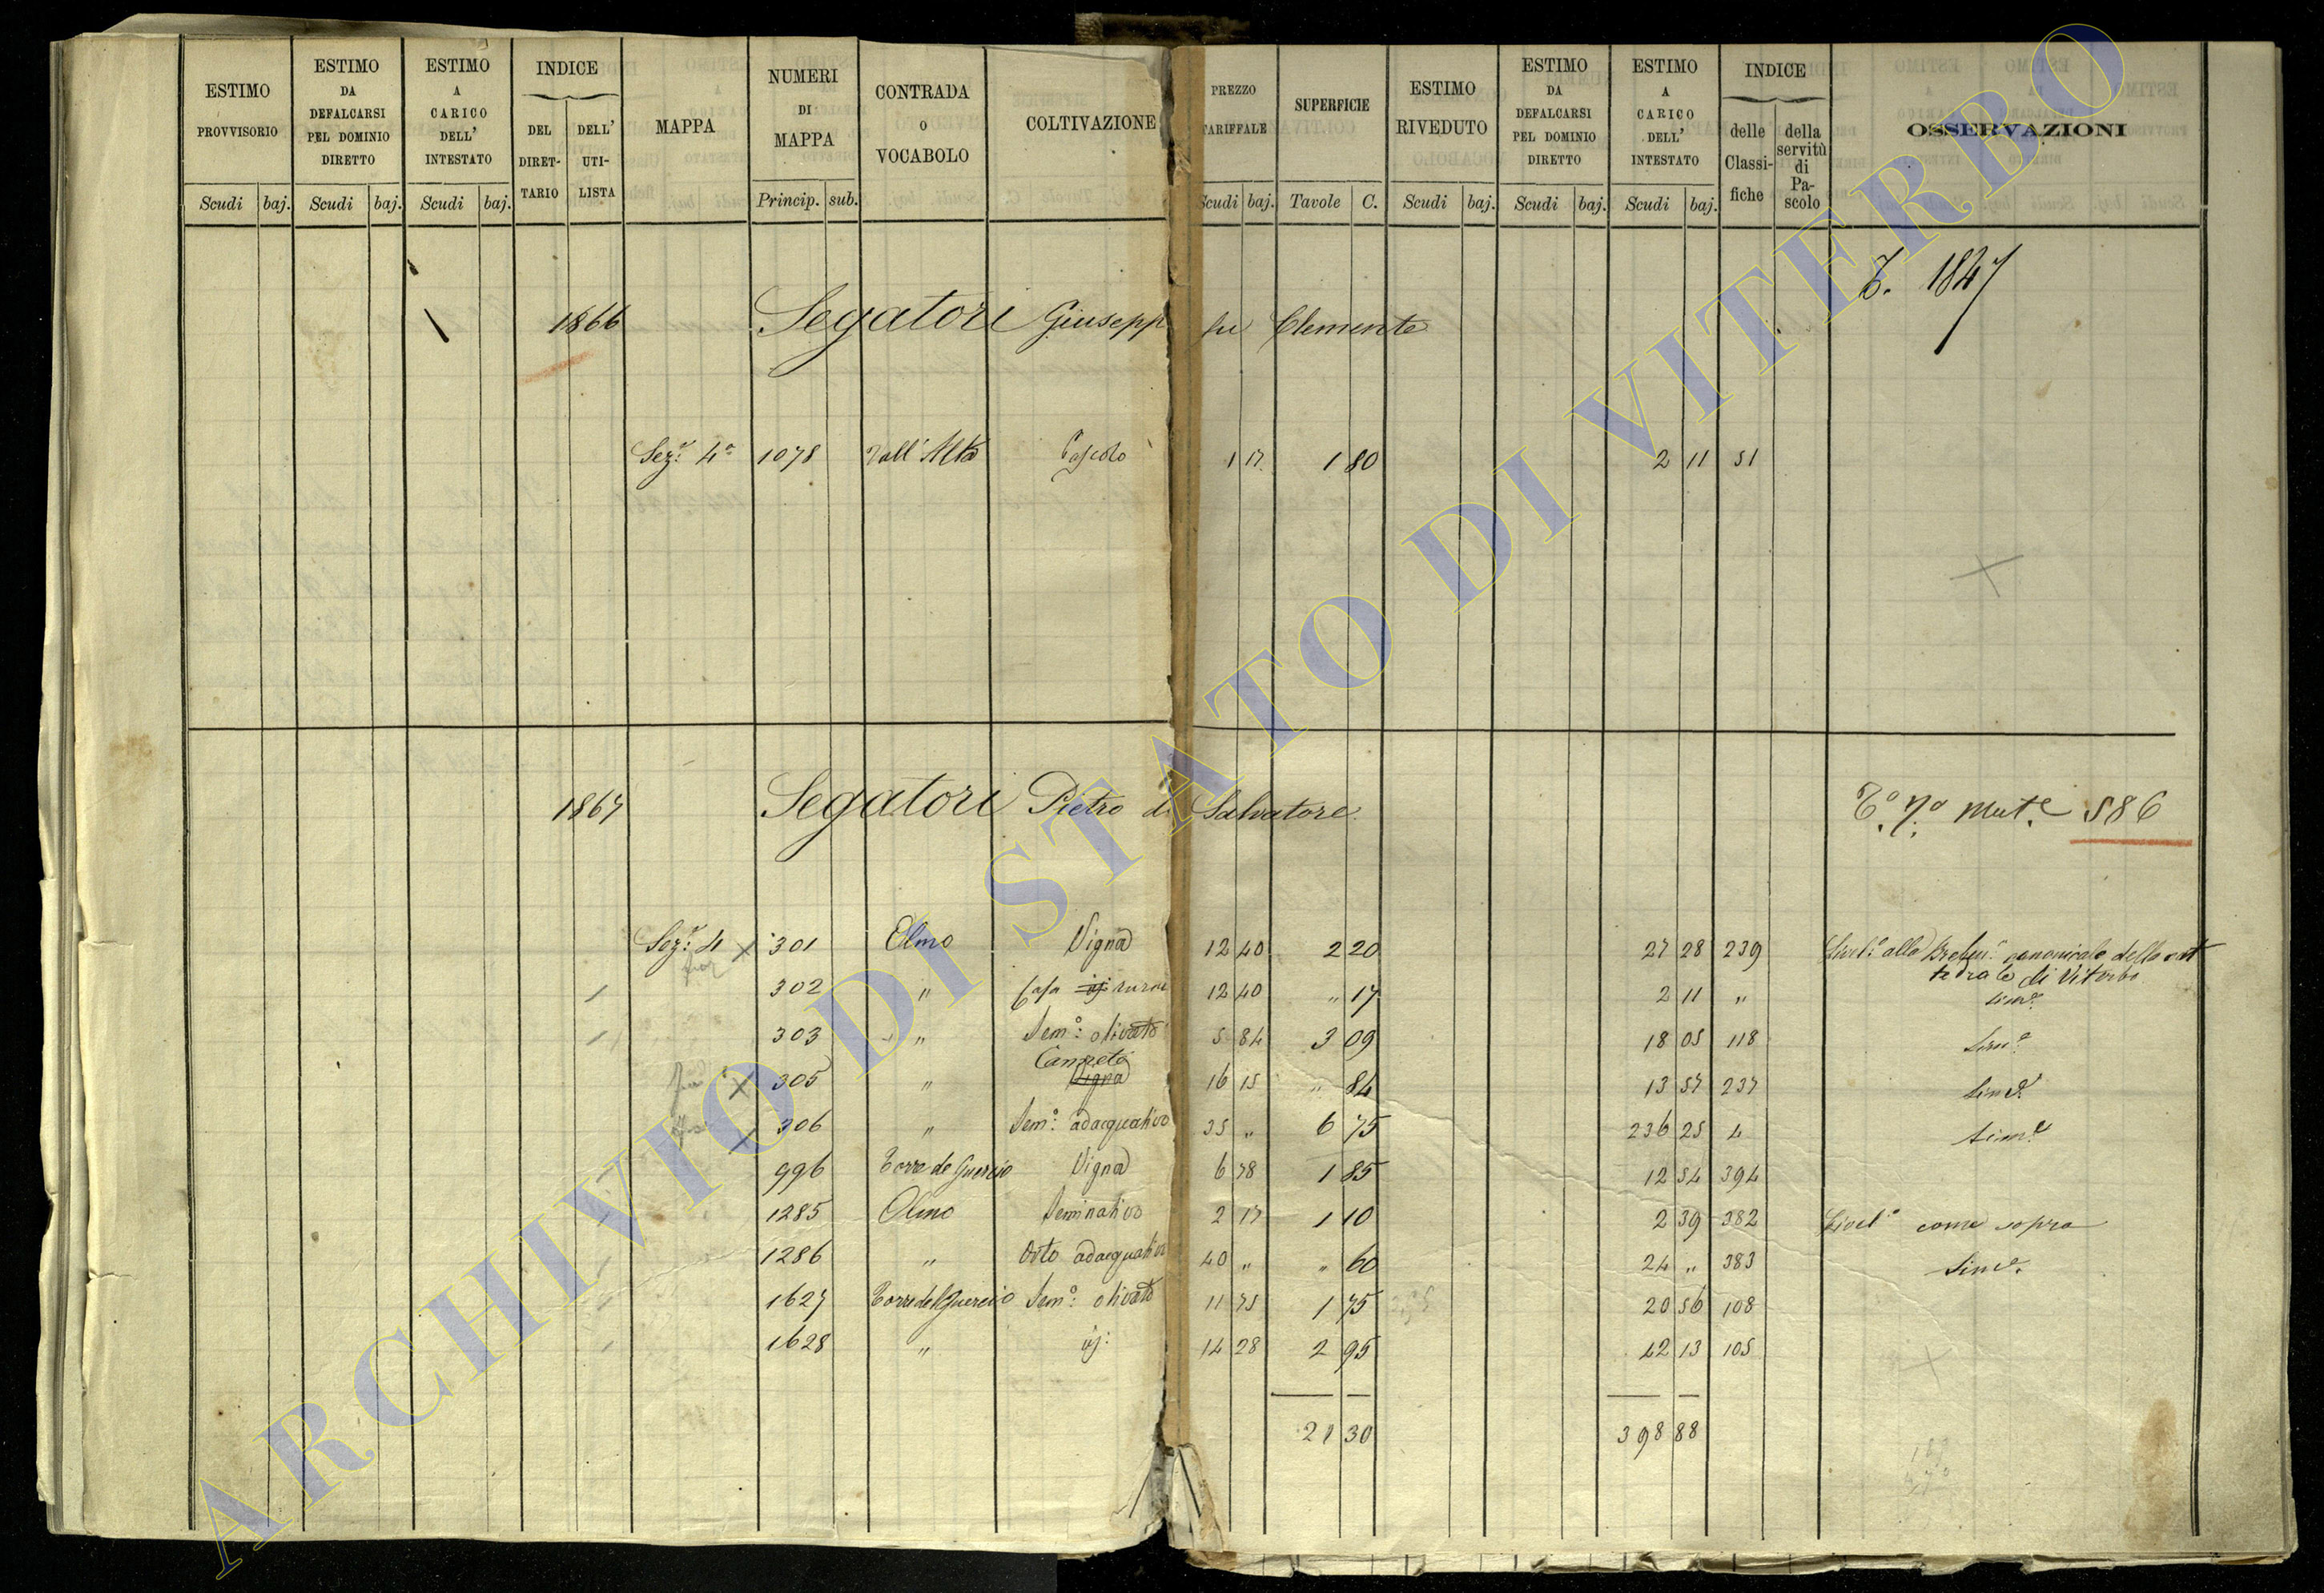 ESTIMO PROVVISORIO
ESTIMO DA DEFALCARSI PEL DOMINIO DIRETTO
ESTIMO A CARICO DELL' INTESTATO
INDICE
DEL DIRET-TARIO
DELL' UTI-LISTA
MAPPA
NUMERI DI MAPPA
CONTRADA O VOCABOLO
COLTIVAZIONE
PREZZO TARIFFALE
SUPERFICIE
ESTIMO RIVEDUTO
ESTIMO DA DEFALCARSI PEL DOMINIO DIRETTO
ESTIMO A CARICO DELL' INTESTATO
INDICE
delle Classi-fiche
della servitù di Pa-scolo
OSSERVAZIONI
Scudi baj. Scudi baj. Scudi baj. Princip. sub. Scudi baj. Tavole C. Scudi baj. Scudi baj. Scudi baj.
T. 1847
1866 Segatori Giusepp fu Clemente
Sez: 4ª 1078 Vall'Alta Pascolo 1 17 1 80 2 11 51
1867 Segatori Pietro di Salvatore
Mut.e 586
Sez: 4 301 Olmo Vigna 12 40 2 20 27 28 239 canonicale della cat
tedrale di Viterbo
302 " Casa 12 40 " 17 2 11 " Sime
303 " Sem: olivato 5 84 3 09 18 05 118 Sime
305 " Canneto Vigna 16 15 " 84 13 57 237 Sime
306 " Sem: adacquativo 35 " 6 75 236 25 4 Sime
996 Torre de Guercio Vigna 6 78 1 85 12 54 394
1285 Olmo Seminativo 2 17 1 10 2 39 382 Livel. come sopra
1286 " Orto adacquativo 40 " " 60 24 " 383 Sime.
1627 Torre del Guercio Sem: olivato 11 75 1 75 20 56 108
1628 " id: 14 28 2 95 42 13 105
21 30 398 88
ARCHIVIO DI STATO DI VITERBO